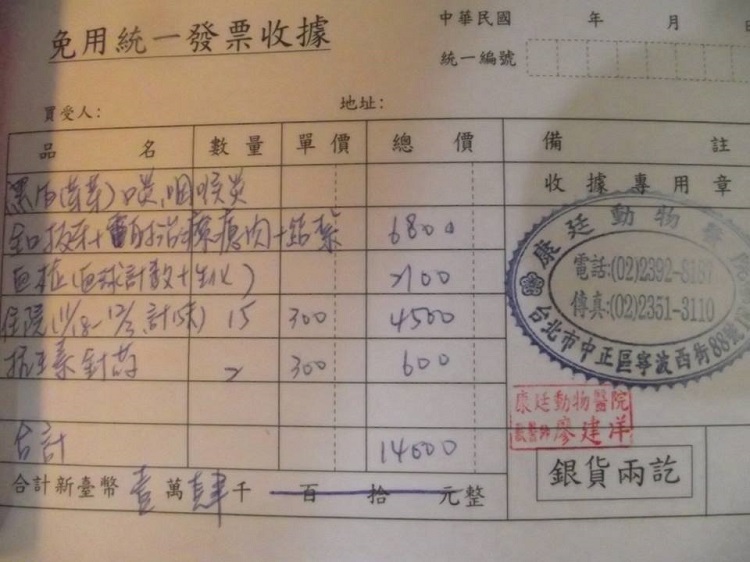 免用統一發票收據
中華民國 年 月
統一編號
買受人: 地址:
品名 數量 單價 總價 備註
黑白(茸茸)口炎,咽喉炎 收據專用章
拔牙+雷射治療瘜肉+鎮 6800
血檢(血球計數+生化) 2100
住院(11/18-12/3計15天) 15 300 4500
抗生素針劑 2 300 600
合計 14000
合計新臺幣 壹萬肆千 百 拾 元整
康廷動物醫院
電話:(02)2392-8187
傳真:(02)2351-3110
台北市中正區寧波西街88號
康廷動物醫院
獸醫師 廖建洋
銀貨兩訖